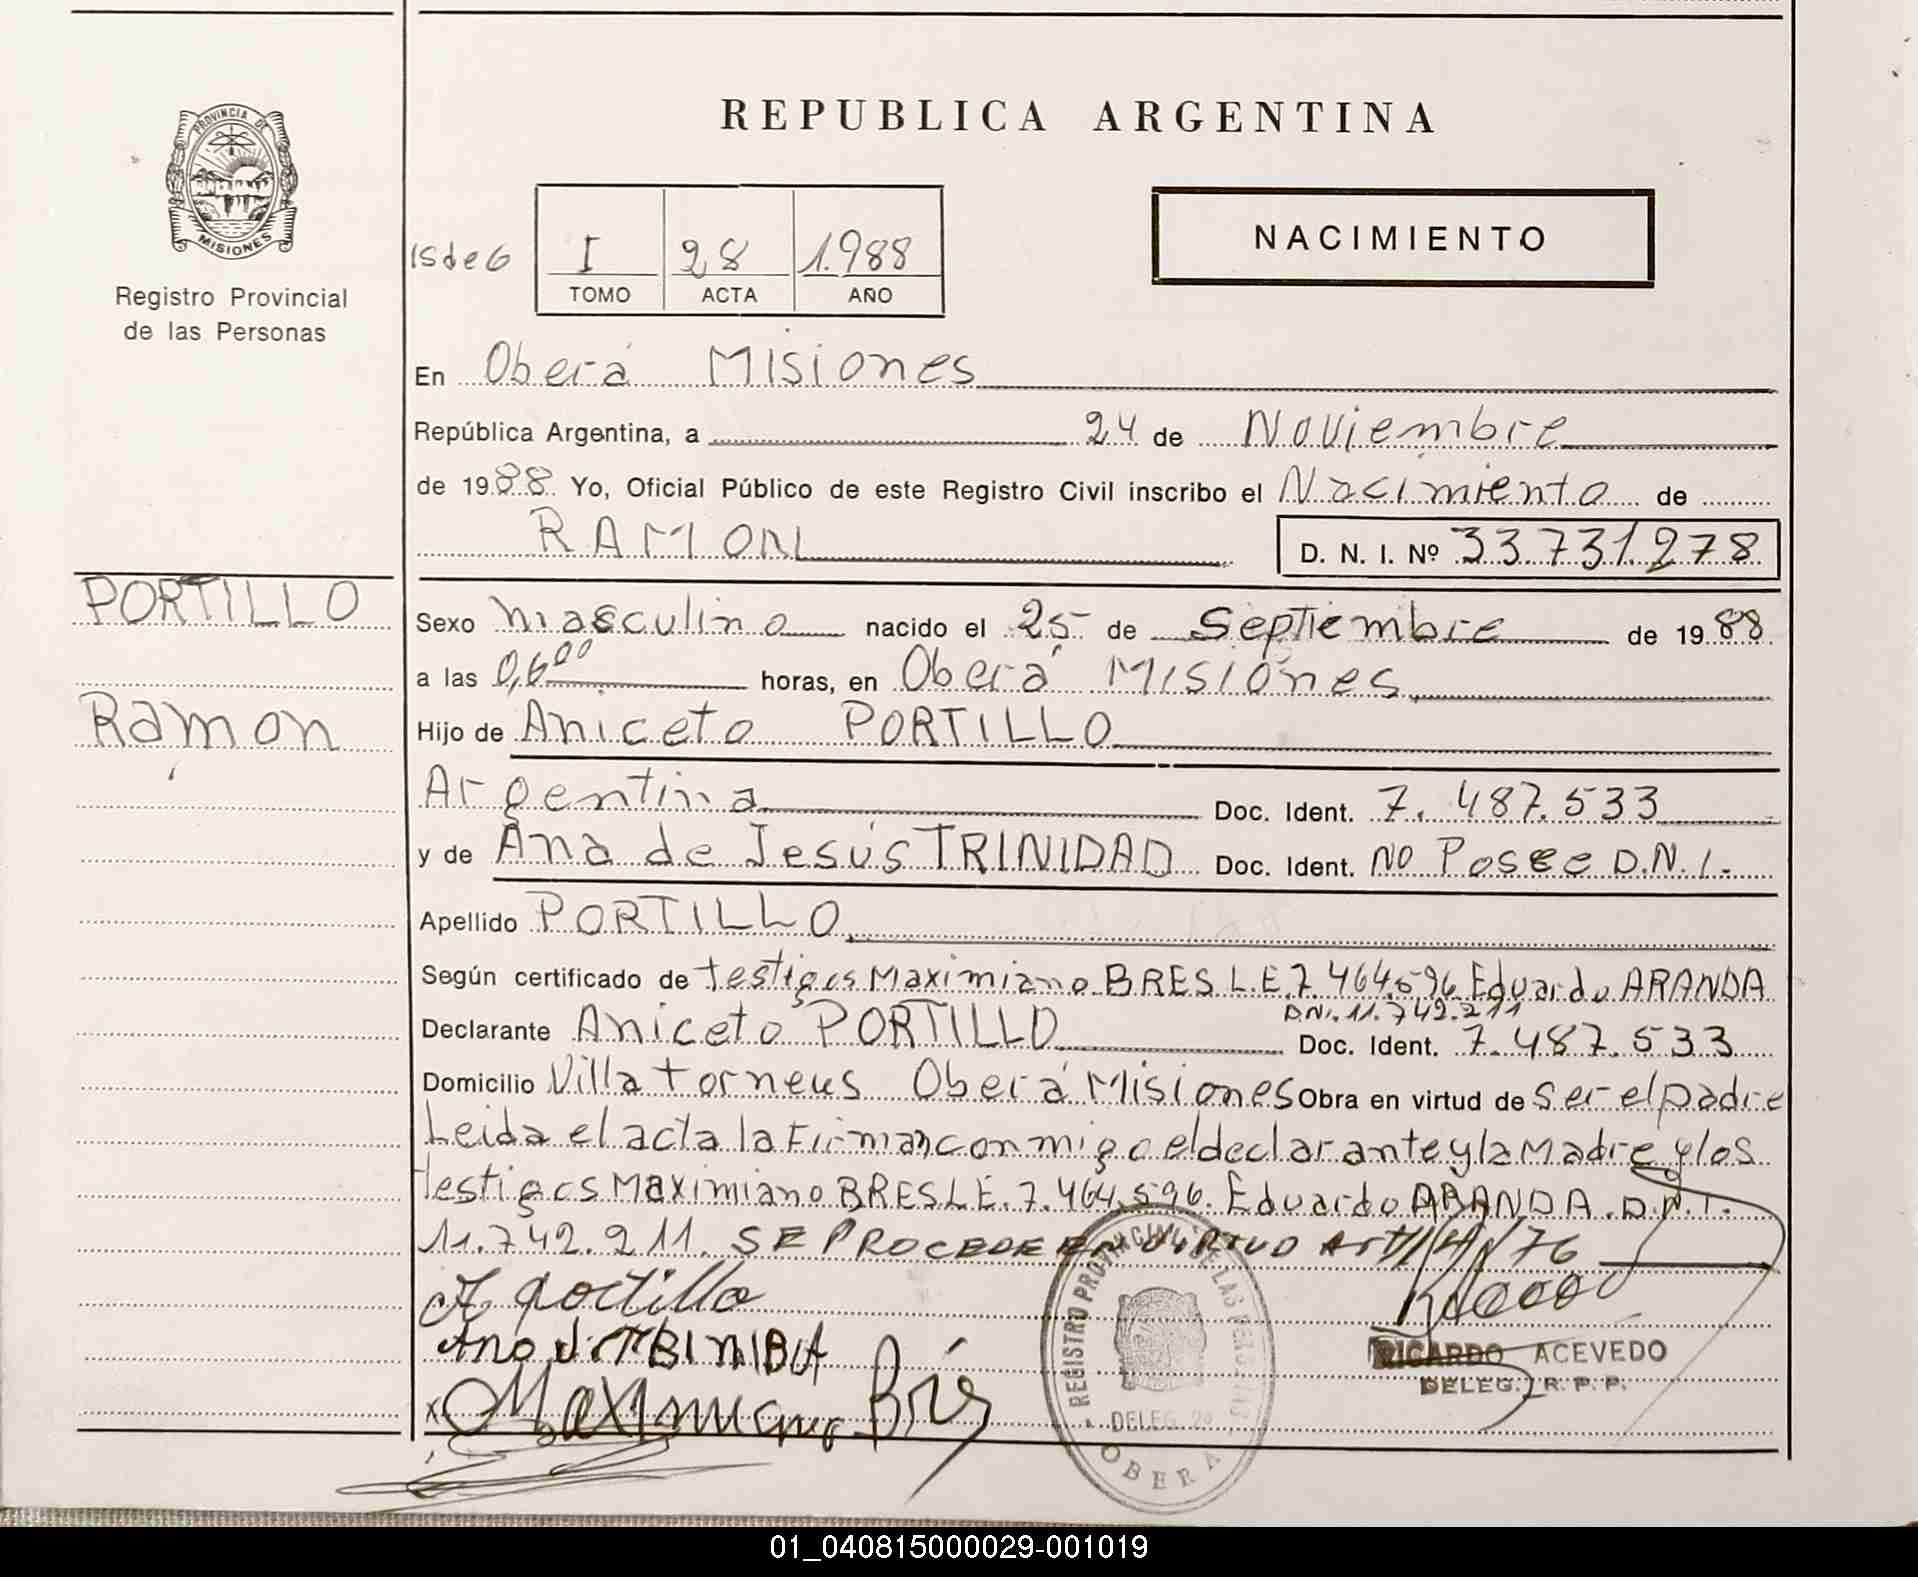 REPUBLICA ARGENTINA
PROVINCIA DE
MISIONES
Registro Provincial
de las Personas
NACIMIENTO
ISde6
I 28 1.988
TOMO ACTA AÑO
En Oberá Misiones
República Argentina, a 24 de Noviembre
de 1988 Yo, Oficial Público de este Registro Civil inscribo el Nacimiento de
RAMON D. N. I. Nº 33.731.278
PORTILLO
Ramon
Sexo masculino nacido el 25 de Septiembre de 1988
a las 0,6 00 horas, en Oberá Misiones
Hijo de Aniceto PORTILLO
Argentina Doc. Ident. 7.487.533
y de Ana de Jesús TRINIDAD Doc. Ident. NO Posee D.N.I.
Apellido PORTILLO
Según certificado de testigos Maximiano BRES L.E.7.464.596 Eduardo ARANDA
D.N.I. 11.742.211
Declarante Aniceto PORTILLO Doc. Ident. 7.487.533
Domicilio Villa torneus Oberá Misiones Obra en virtud de Ser el padre
Leida el acta la Firman conmigo el declarante y la Madre y los
testigos Maximiano BRES L.E. 7.464.596. Eduardo ARANDA. D.N.I.
11.742.211. SE PROCEDE EN VIRTUD
A portillo
Maximiano Brés
REGISTRO PROVINCIAL DE LAS PERSONAS
DELEG. 2ª
OBERA
RICARDO ACEVEDO
DELEG. R. P. P.
01_040815000029-001019